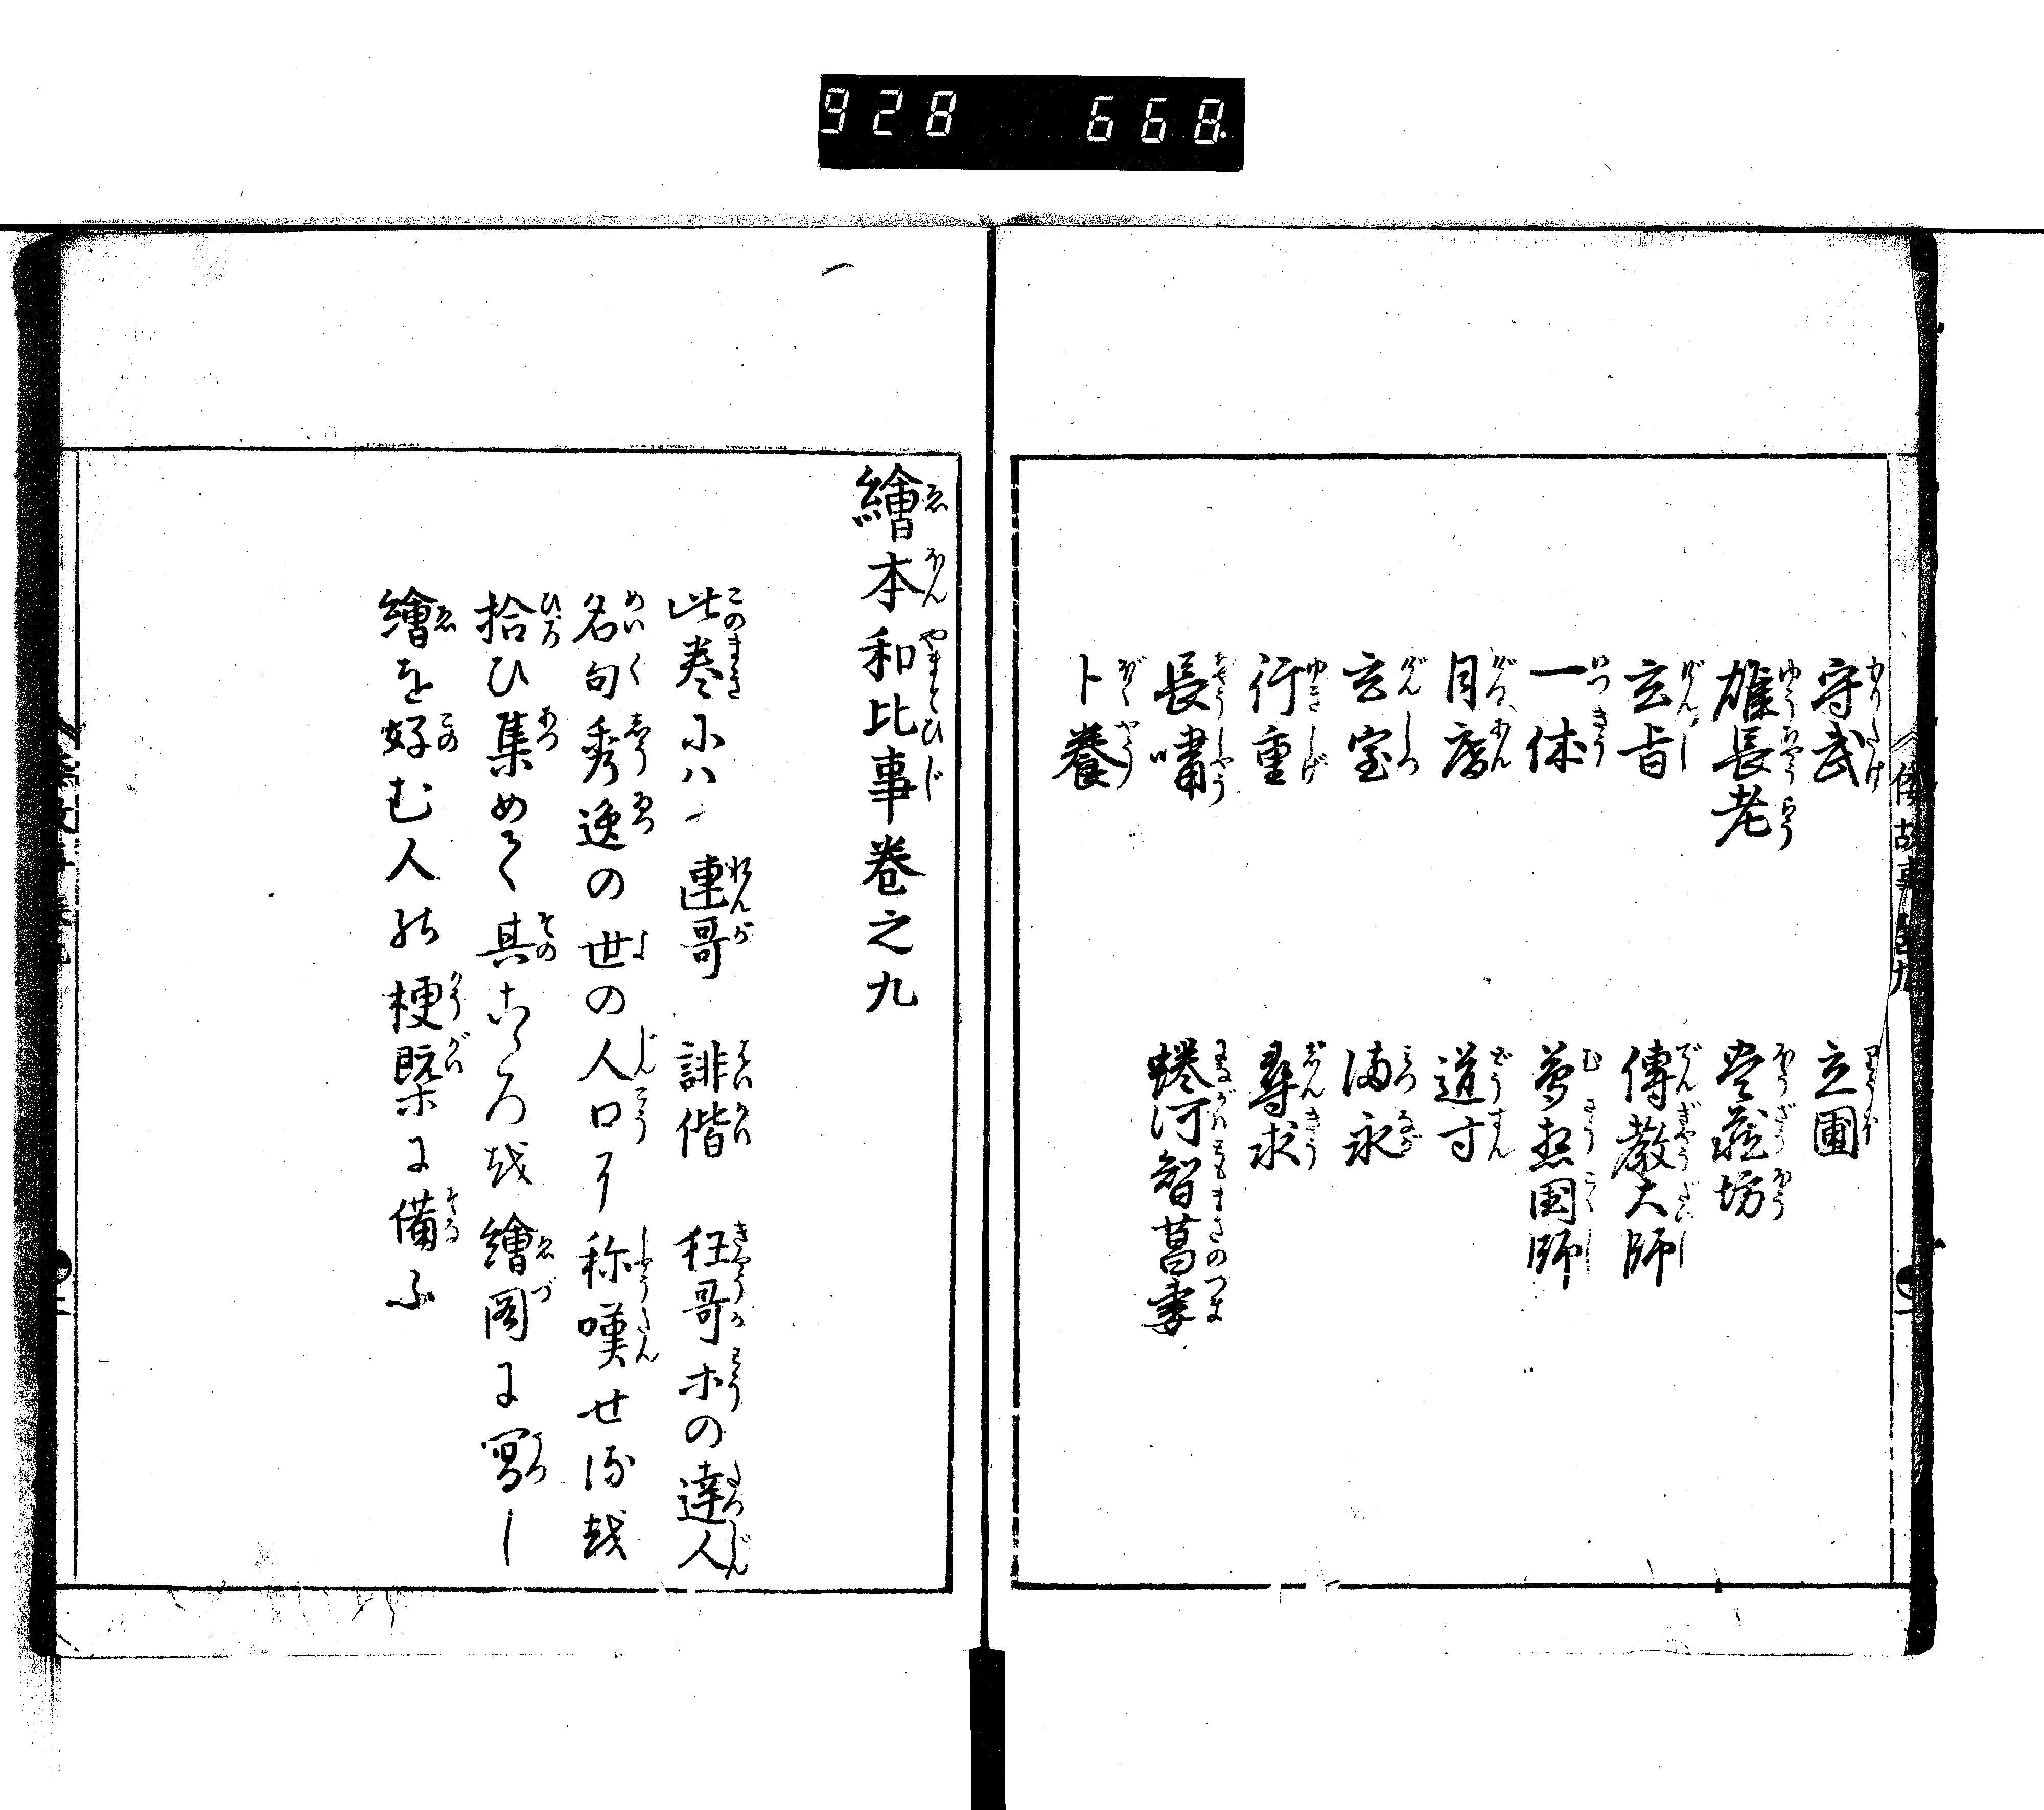 928 668
守武
雄長老
玄旨
一休
月庵
玄室
行重
長嘯
卜養
立圃
豊蔵坊
傳教大師
夢想国師
道寸
満永
尋求
蜷河智蒕妻
倭故事 巻九
繪本和比事巻之九
此巻にハ連哥 誹偕 狂哥ホの達人
名句秀逸の世の人口に称嘆せるを
拾ひ集めて其こゝろを繪図に寫し
繪を好む人の梗槩に備ふ